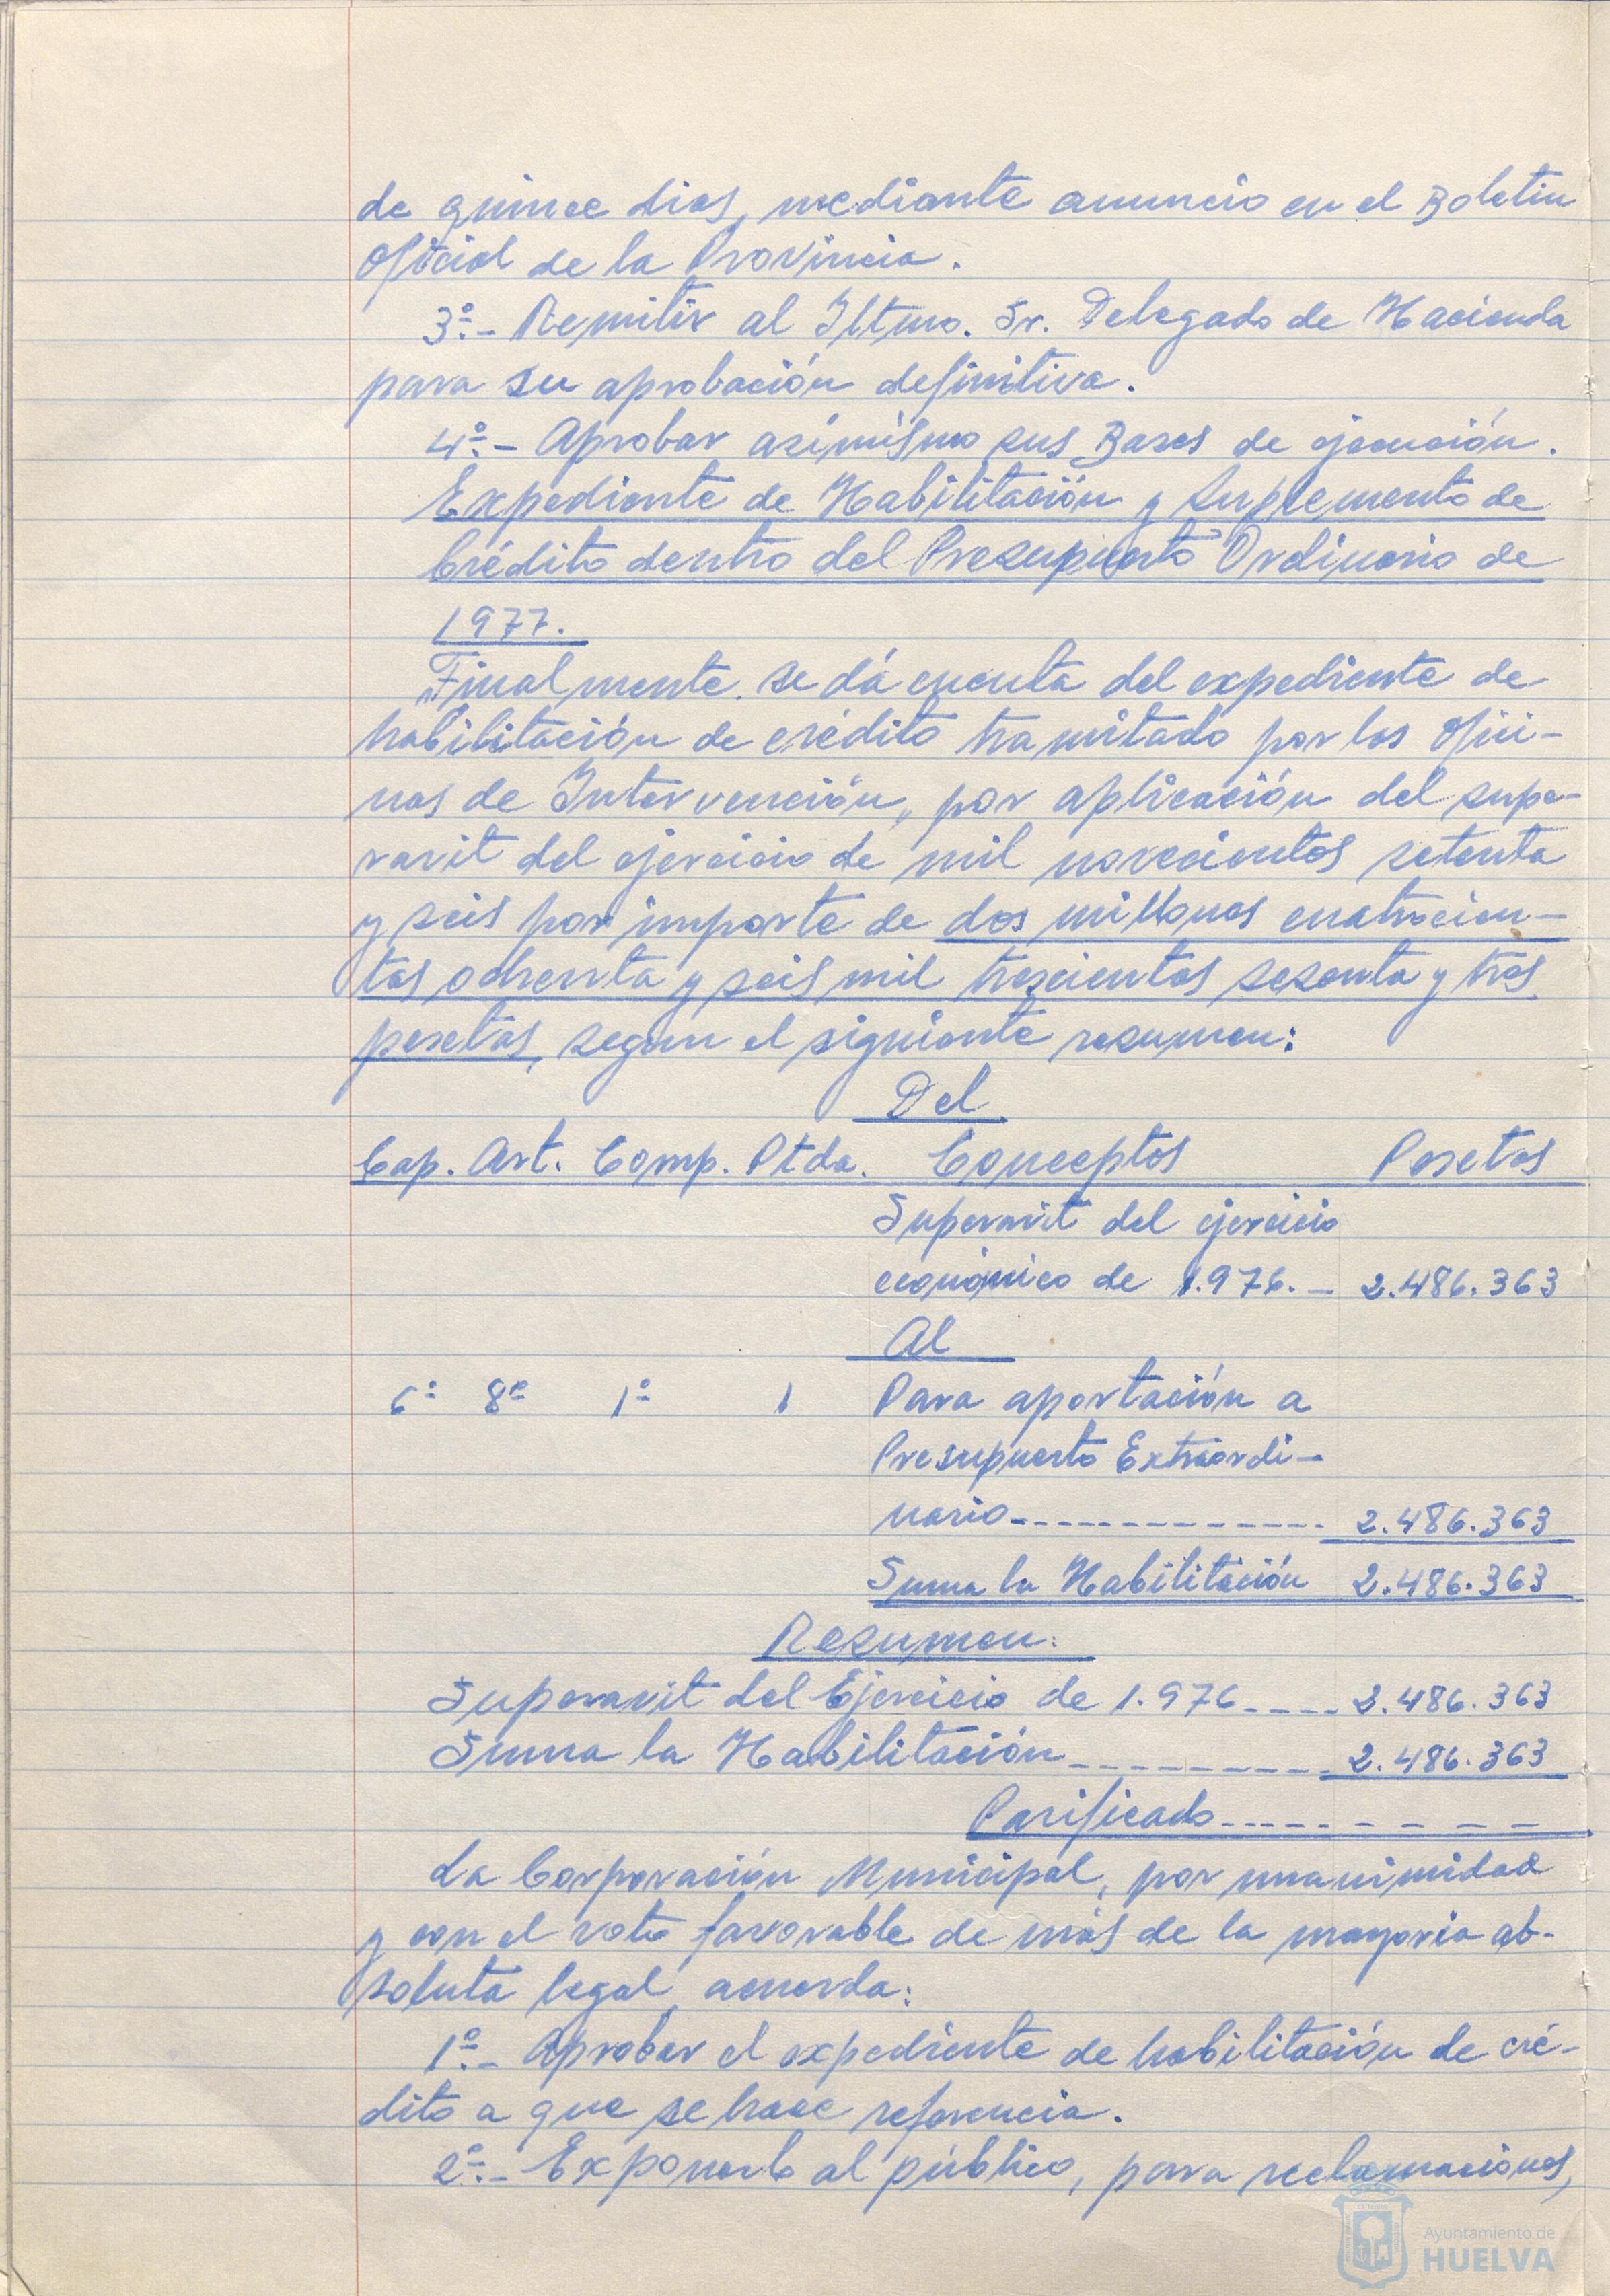 de quince dias, mediante anuncio en el Boletin
Oficial de la Provincia.
3º.- Remitir al Iltmo. Sr. Delegado de Hacienda
para su aprobación definitiva.
4º.- Aprobar asímismo sus Bases de ejecución.
Expediente de Habilitación y Suplemento de
Crédito dentro del Presupuesto Ordinario de
1977.
Finalmente se dá cuenta del expediente de
habilitación de crédito tramitado por las Ofici-
nas de Intervención, por aplicación del supe-
ravit del ejercicio de mil novecientos setenta
y seis por importe de dos millones cuatrocien-
tas ochenta y seis mil trescientas sesenta y tres
pesetas, segun el siguiente resumen:
Del
Cap. Art. Comp. Ptda. Conceptos Pesetas
Superavit del ejercicio
económico de 1.976.- 2.486.363
Al
6º 8º 1º 1 Para aportación a
Presupuesto Extraordi-
nario------------- 2.486.363
Suma la Habilitación 2.486.363
Resumen:
Superavit del Ejercicio de 1.976---- 2.486.363
Suma la Habilitación--------- 2.486.363
Parificado----------
La Corporación Municipal, por unanimidad
y con el voto favorable de más de la mayoria ab-
soluta legal, acuerda:
1º.- Aprobar el expediente de habilitación de cré-
dito a que se hace referencia.
2º.- Exponerlo al público, para reclamaciones,
Ayuntamiento de
HUELVA